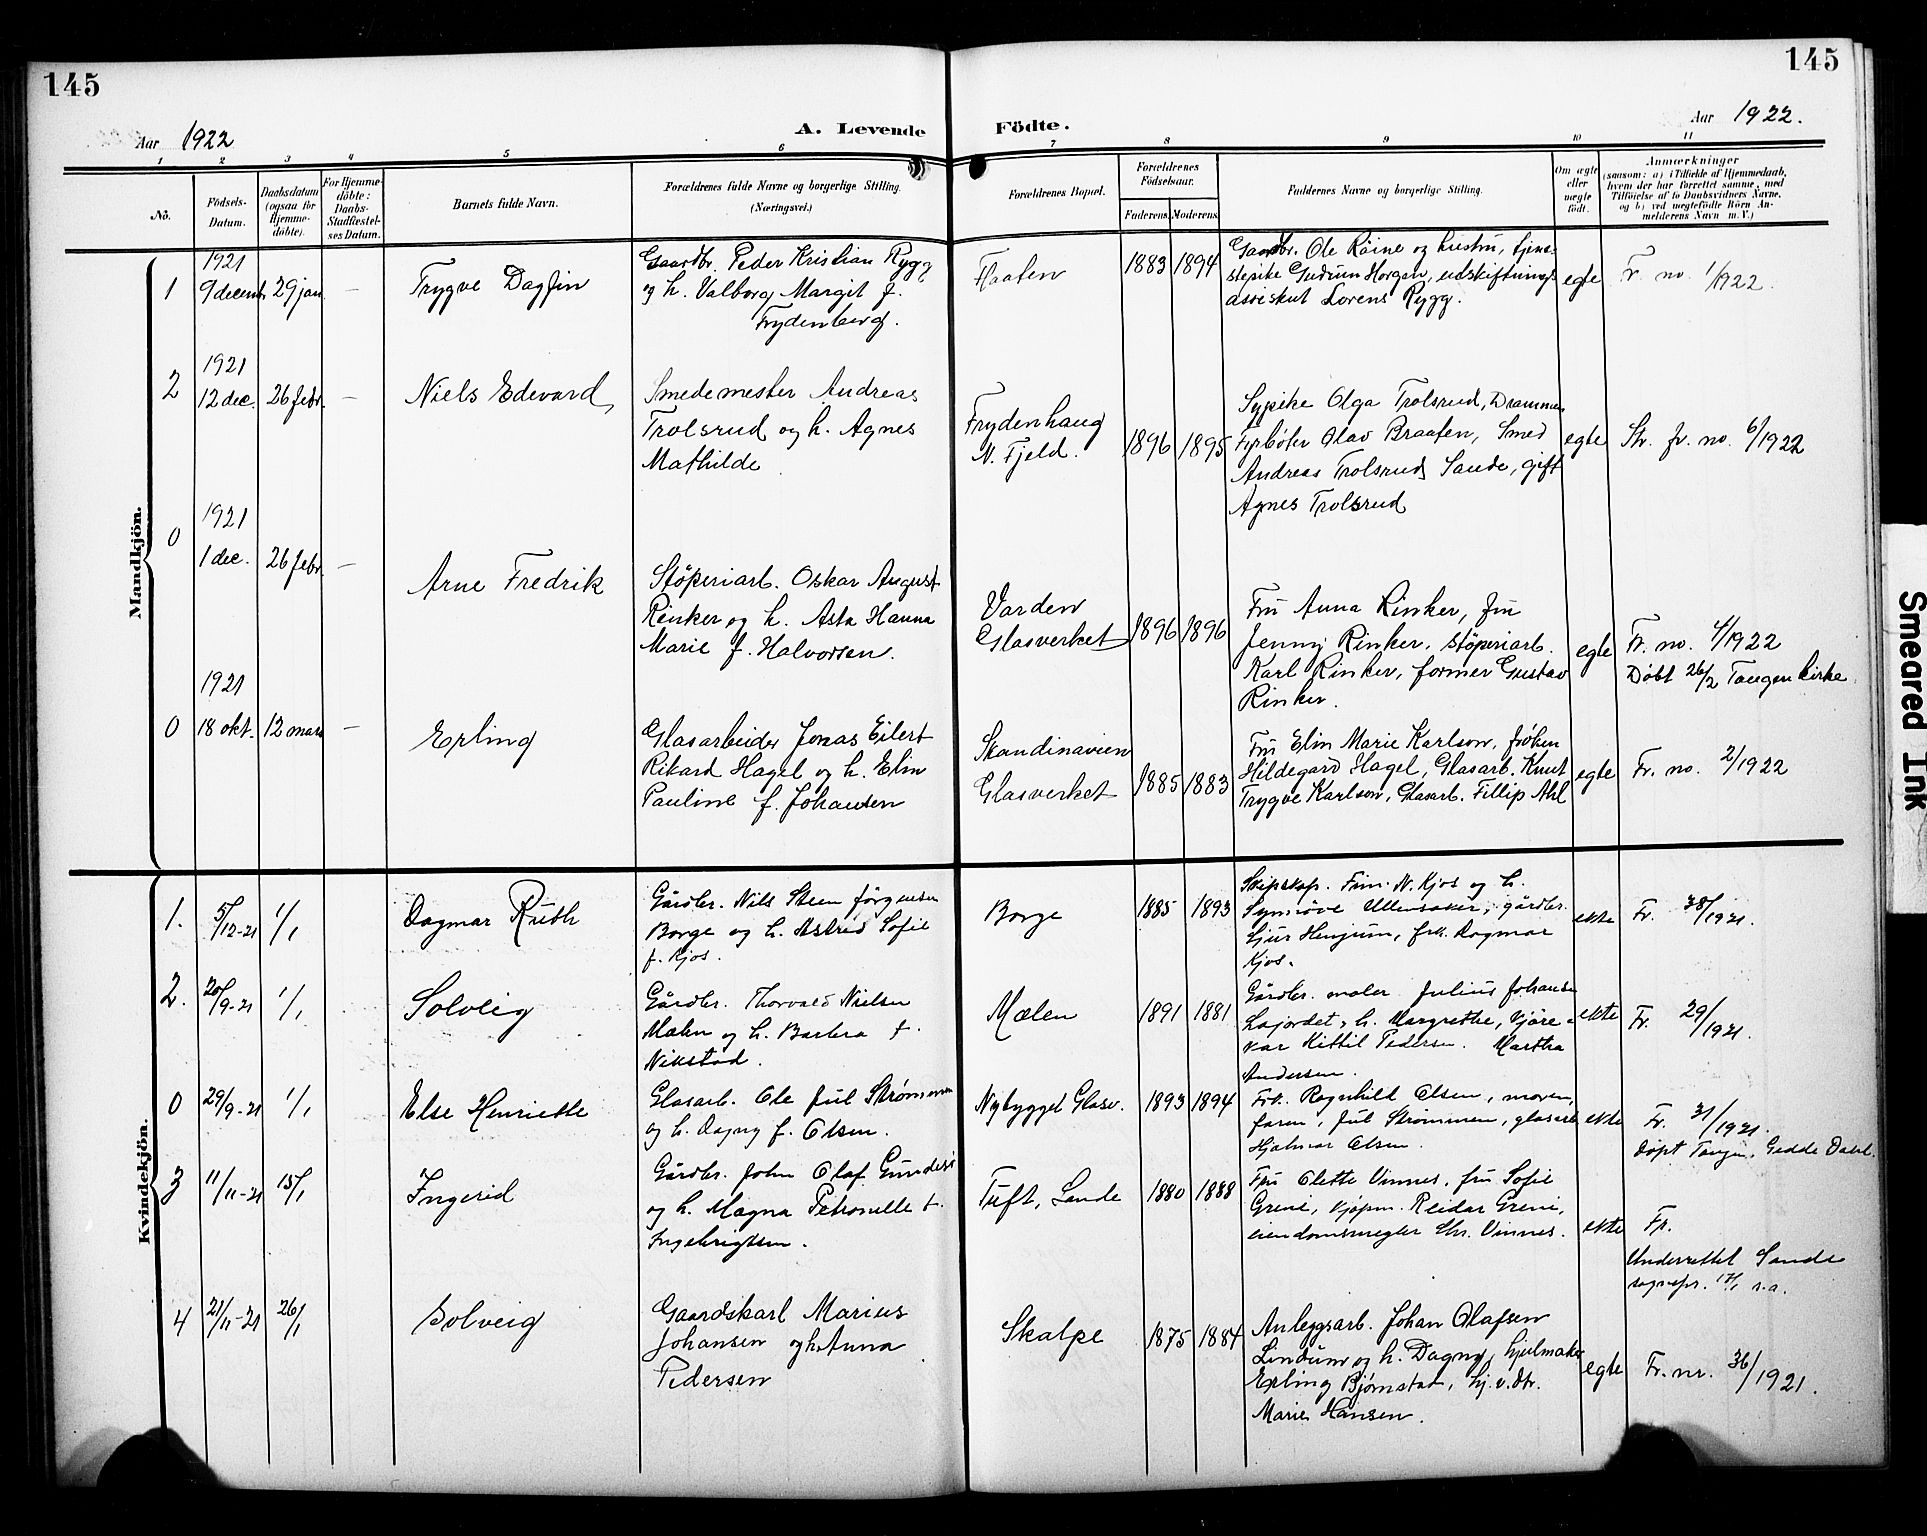 145
145
Aar 1922
A. Levende Födte.
Aar 1922.
1 2 3 4 5 6 7 8 9 10 11
No.
Födsels-
Datum.
Daabsdatum
(ogsaa for
Hjemme-
döbte).
For Hjemme-
döbte:
Daabs-
Stadfæstel-
ses Datum.
Barnets fulde Navn.
Forældrenes fulde Navne og borgerlige Stilling.
(Næringsvei.)
Forældrenes Bopæl.
Forældrenes
Födselsaar.
Faderens. Moderens.
Faddernes Navne og borgerlige Stilling.
Om ægte
eller
uægte
født.
Anmærkninger
(saasom: a) i Tilfælde af Hjemmedaab,
hvem der har forrettet samme, med
Tilföielse af to Daabsvidners Navne,
og b) ved uægtefödte Börn An-
melderens Navn m. V.)
Mandkjön.
1
1921
9 decemb. 29 jan
—
Trygve Dagfin
Gaardbr. Peder Kristian Rygg
og h. Valborg Margit f.
Frydenberg.
Flaaten
1883 1894
Gaardbr. Ole Röine og hustru, tjene-
stepike Gudrun Horgen, udskiftnings
assiskut Lorens Rygg.
egte
Fr. no. 1/1922.
2
1921
12 dec. 26 febr.
—
Niels Edevard,
Smedemester Andreas
Trolsrud og h. Agnes
Mathilde
Frydenhaug
N. Fjeld.
1896 1895
Sypike Olga Trolsrud, Drammen
Fyrbøter Olav Braaten, Smed
Andreas Trolsrud Sande, gift
Agnes Trolsrud
egte
Str. fr. no. 6/1922
0
1921
1 dec. 26 febr.
—
Arne Fredrik
Stöperiarb. Oskar August
Rinker og h. Asta Hanna
Marie f. Halvorsen.
Varden
Glasverket
1896 1896
Fru Anna Rinker, fru
Jenny Rinker, stöperiarb.
Karl Rinker, former Gustav
Rinker.
egte
Fr. no. 4/1922
Döbt 26/2 Tangen kirke
0
1921
18 okt. 12 mars
—
Erling
Glasarbeider Jonas Eilert
Rikard Hagel og h. Elin
Pauline f. Johansen
Skandinavien
Glasverket
1885 1883
Fru Elin Marie Karlson, fröken
Hildegard Hagel, Glasarb. Knut
Trygve Karlson, Glasarb. Fillip Ahl
egte
Fr. no. 2/1922
Kvindekjön.
1.
5/12-21 1/1
Dagmar Ruth
Gårdbr. Nils Steen Jörgensen
Borge og h. Astrid Sofie
f. Kjos.
Borge
1885 1893
Skipskap. Finn N. Kjos og h.
Synnöve Ullensaker, gårdbr.
Sjur Henjum, frk. Dagmar
Kjos.
ekte
Fr. 38/1921.
2.
20/9-21 1/1
Solveig
Gårdbr. Thorvald Nielsen
Mælen og h. Barbra f.
Nikstad.
Mælen
1891 1881
Gårdbr. maler Julius Johansen
Lajordet, h. Margrethe, kjöre-
kar Kittil Pedersen. Martha
Andersen.
ekte
Fr. 29/1921.
0
29/9-21 1/1
Else Henriette
Glasarb. Ole Juul Strømmen
og h. Dagny f. Olsen.
Nybygget Glasv.
1893 1894
Frk. Ragnhild Olsen, moren,
faren, Jul Strömmen, glasarb.
Hjalmar Olsen.
ekte
Fr. 31/1921.
döpt Tangen, Gedde Dahl.
3
11/11-21 15/1
Ingerid
Gårdbr. John Olaf Gundesö
og h. Magna Petronelle f.
Ingebrigtsen.
Tuft, Sande
1880 1888
Fru Olette Vinnes, fru Sofie
Greni, kjöpm. Reidar Greni,
eiendomsmegler Chr. Vinnes.
ekte
Fr.
Underrettet Sande
sognepr. 17/1 s.a.
4
21/11-21 26/1
Solveig
Gaardskarl Marius
Johansen og h. Anna
Pedersen
Skalpe
1875 1884
Anleggsarb. Johan Olafsen
Lindum og h. Dagny, hjulmaker
Erling Bjørnstad, hj.v. dtr.
Marie Hansen.
egte
Fr. nr. 36/1921.
Smeared Ink